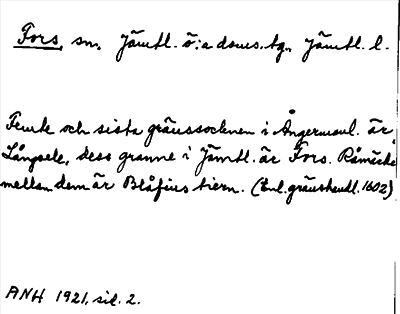 Fors, sn, Jämtl. ö:a doms.tg., Jämtl. l.
Femte och sista gränssocknen i Ångermanl. är
Långsele, dess granne i Jämtl. är Fors. Råmärke
mellan dem är Blåfius tiern. (Enl. gränshandl. 1602)
ANH 1921, sid. 2.